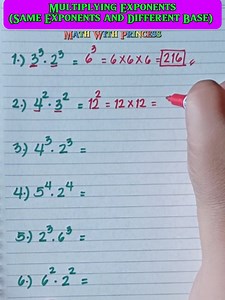 Multiplying Exponents
(Same Exponents and Different Base)
Math With Princess
1.) 3³ · 2³ = 6³ = 6 x 6 x 6 = 216
2.) 4² · 3² = 12² = 12 x 12 =
3.) 4³ · 2³ =
4.) 5⁴ · 2⁴ =
5.) 2³ · 6³ =
6.) 6² · 2² =